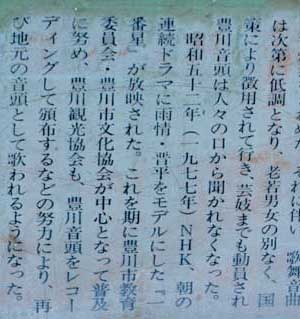 歌舞音曲
は次第に低調となり、老若男女の別なく、国
策により徴用されて行き、芸妓までも動員され
豊川音頭は人々の口から聞かれなくなった。
昭和五十二年(一九七七年)NHK、朝の
連続ドラマに雨情・晋平をモデルにした『一
番星』が放映された。これを期に豊川市教育
委員会・豊川市文化協会が中心となって普及
に努め、豊川観光協会も、豊川音頭をレコー
ディングして頒布するなどの努力により、再
び地元の音頭として歌われるようになった。